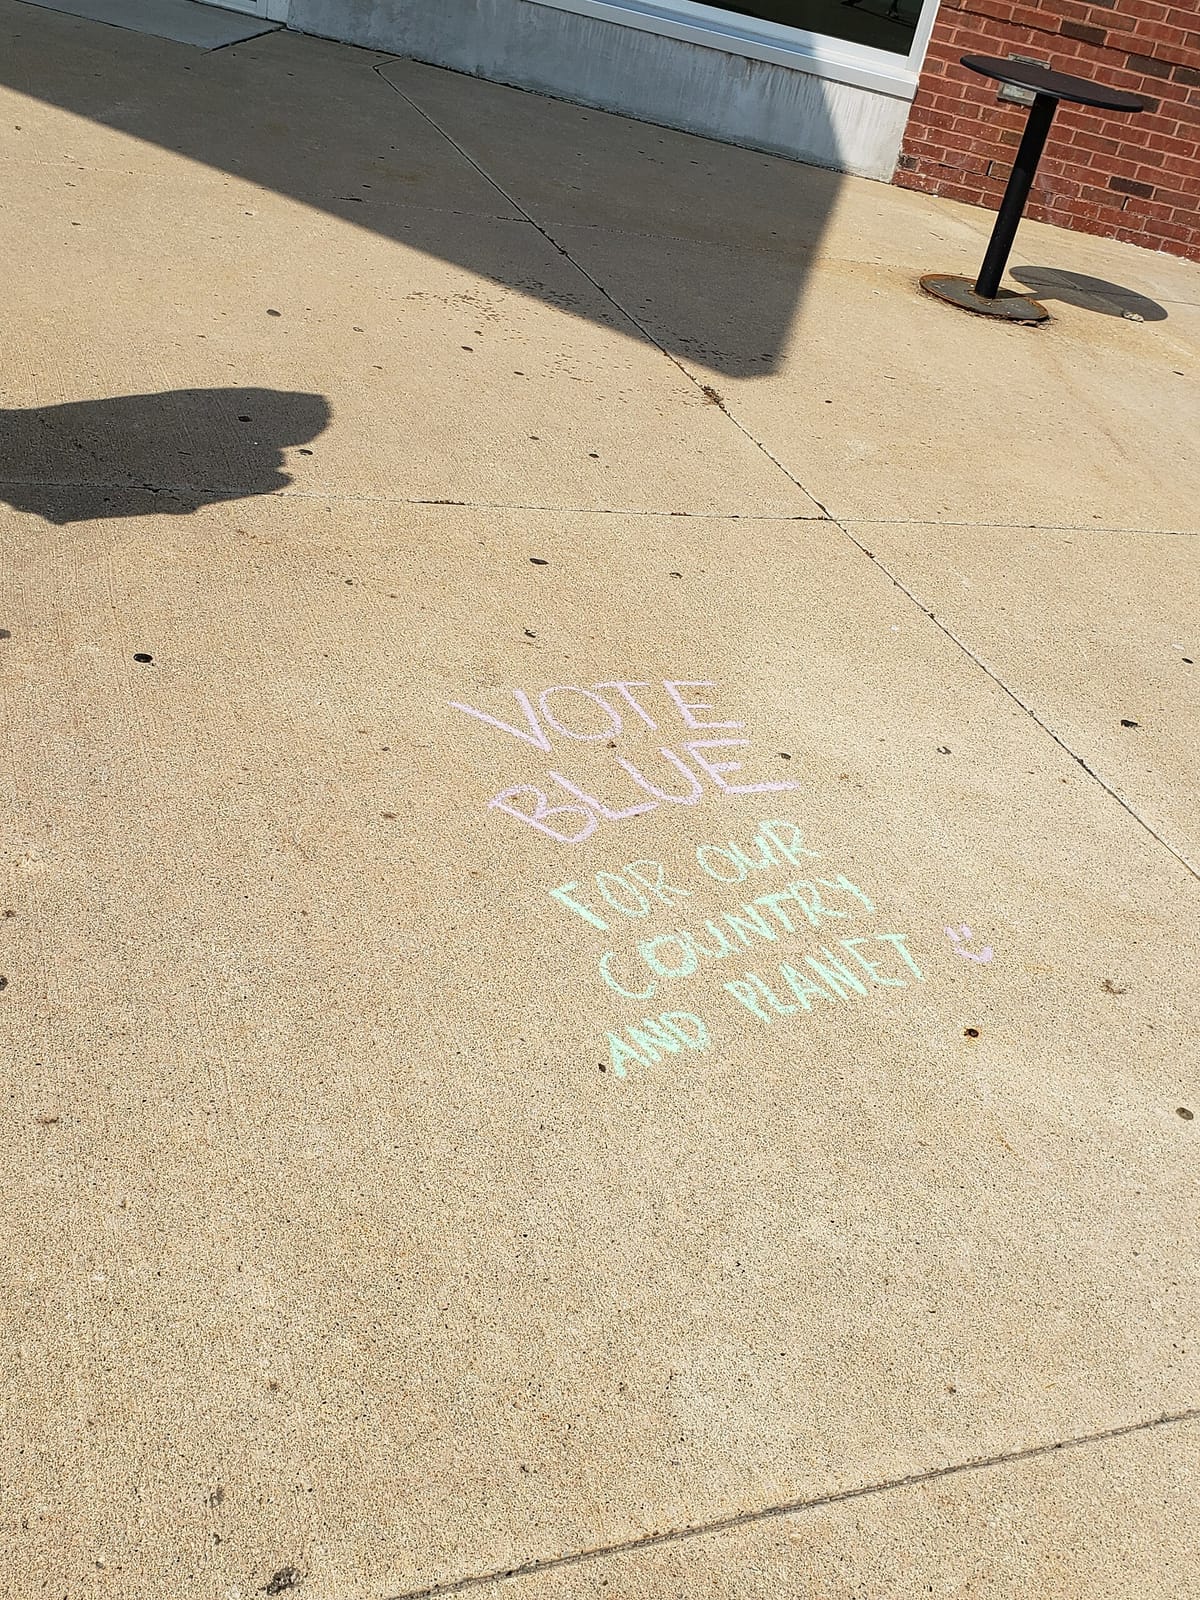 VOTE
BLUE
FOR OUR
COUNTRY
AND PLANET